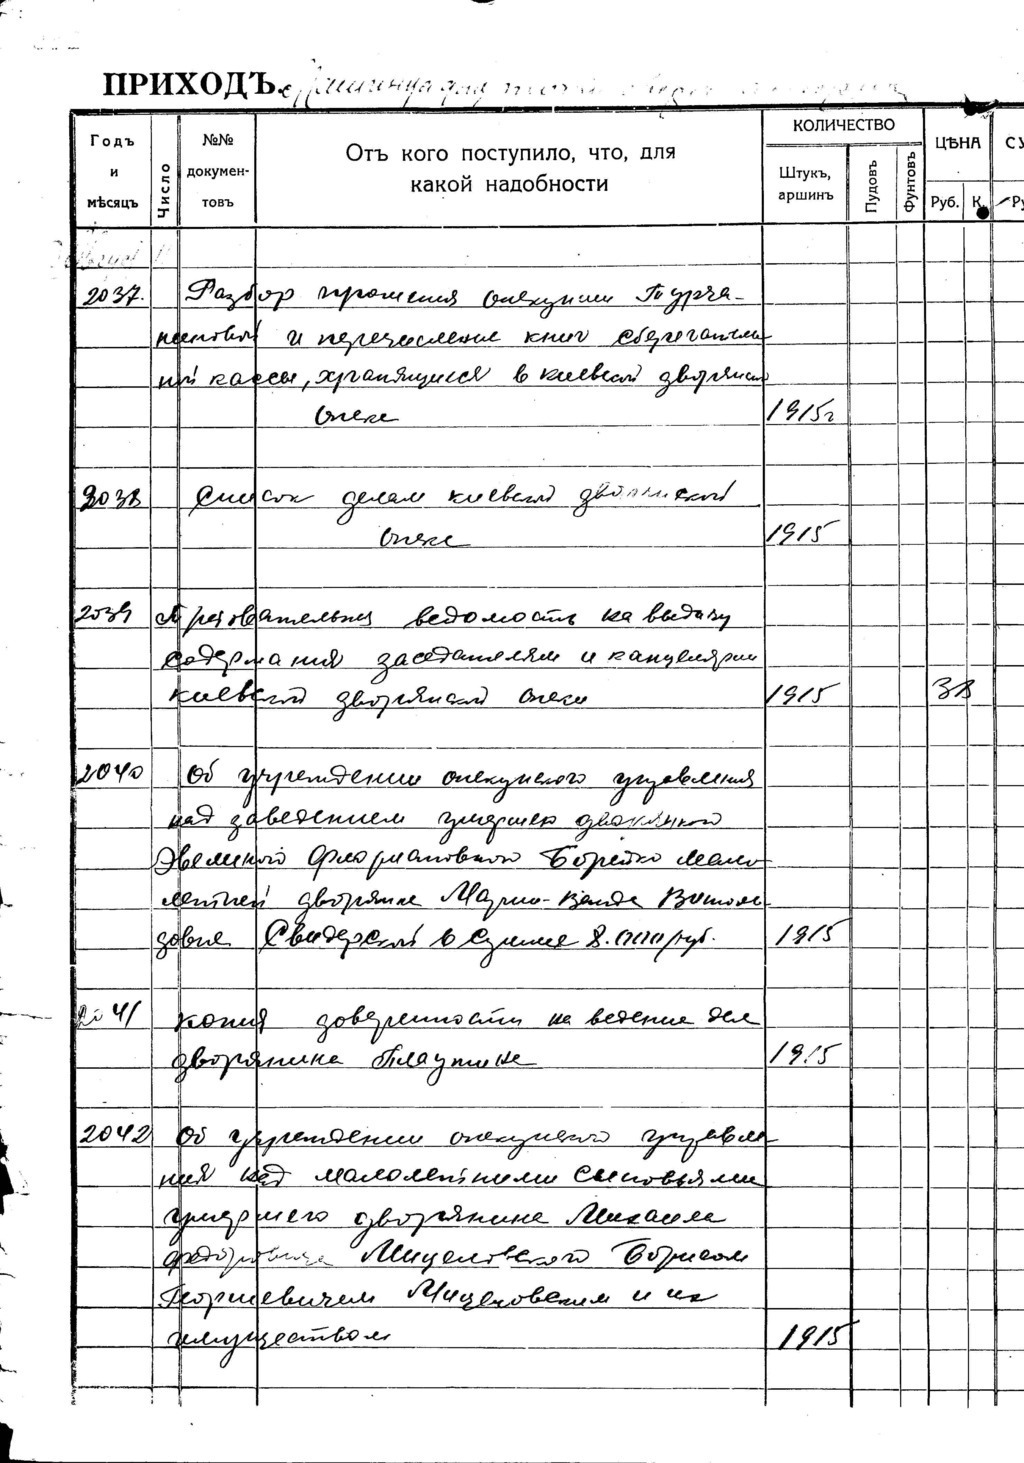 ПРИХОДЪ
Годъ и мѣсяцъ
Число
№№ докумен-товъ
Отъ кого поступило, что, для какой надобности
КОЛИЧЕСТВО
Штукъ, аршинъ
Пудовъ
Фунтовъ
ЦѢНА
Руб. К.
2037. Разбор прошения опекунши Турча-
ниновой и перечисление книг сберегатель
ной кассы, хранящиеся в киевской дворянской
опеке 1915г
2038 Список делам киевской дворянской
опеке 1915
2039 Требовательная ведомость на выдачу
содержания заседателям и канцелярии
киевской дворянской опеки 1915 38
2040 Об учреждении опекунского управления
над заведением умершей дворянкой
Эвелиной Флориановной Борейко мало-
летней дворянке Марии-Ванде Витоль-
довне Свидерской в сумме 8.000 руб. 1915
2041 Копия доверенности на ведение дел
дворянина Плаутина 1915
2042 Об учреждении опекунского управле-
ния над малолетними сыновьями
умершего дворянина Михаила
Федоровича Борисом
Георгиевичем и их
имуществом 1915